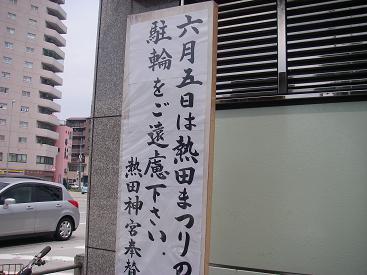 六月五日は熱田まつりの
駐輪をご遠慮下さい.
熱田神宮奉賛